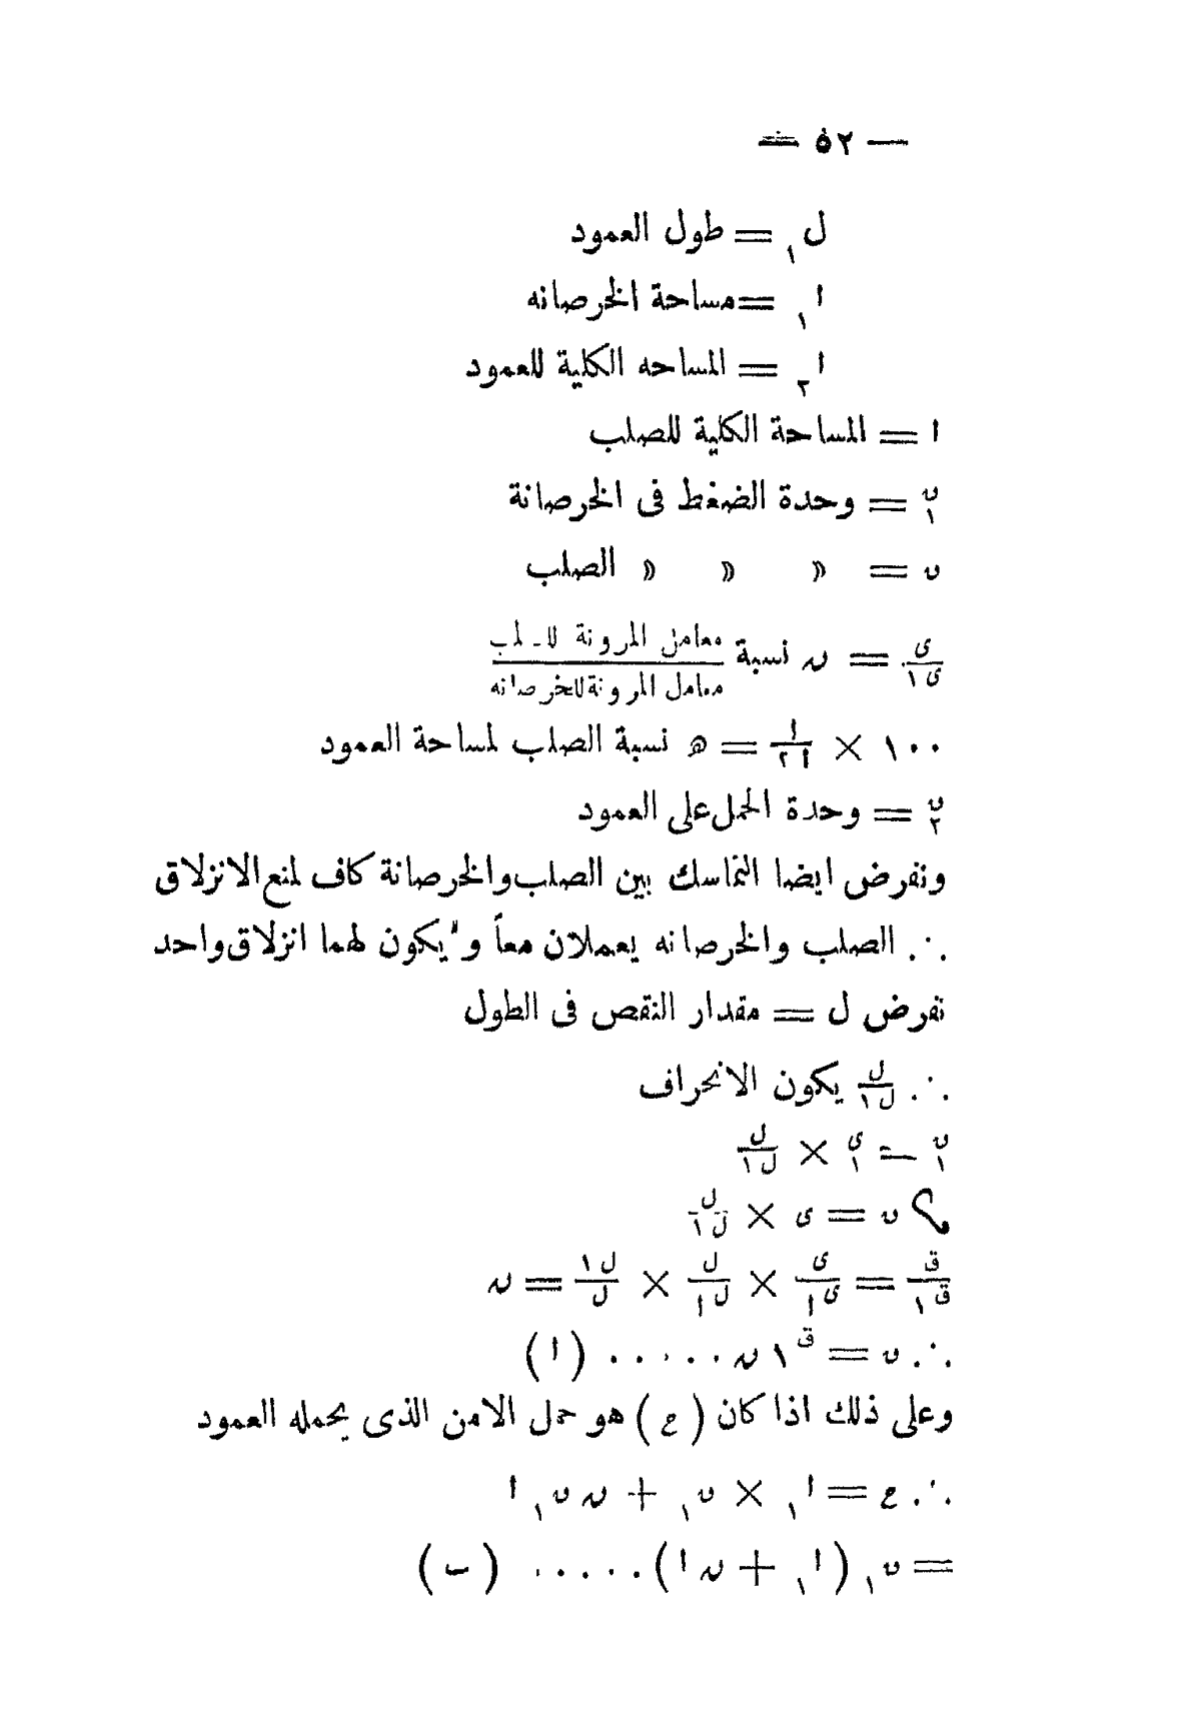 — ٥٢ —
ل١ = طول العمود
ا١ = مساحة الخرصانه
ا٢ = المساحه الكلية للعمود
ا = المساحة الكلية للصلب
ں١ = وحدة الضغط فى الخرصانة
ں = » » » الصلب
ى/ى١ = ںہ نسبة معامل المرونة للصلب/معامل المرونة للخرصانه
١٠٠ × ا/ا٢ = ھ نسبة الصلب لمساحة العمود
ں٢ = وحدة الحمل على العمود
ونفرض ايضا التماسك بين الصلب والخرصانة كاف لمنع الانزلاق
∴ الصلب والخرصانه يعملان معاً و يكون لهما انزلاق واحد
نفرض ل = مقدار النقص فى الطول
∴ ل/ل١ يكون الانحراف
ں١ = ى١ × ل/ل١
ں = ى × ل/ل١
ق/ق١ = ى/ى١ × ل/ل١ × ل١/ل = ںہ
∴ ں = ق١ ںہ ..... (ا)
وعلى ذلك اذا كان (ع) هو حمل الامن الذى يحمله العمود
∴ ع = ا١ × ں١ + ںہ ں١ ا
= ں١ (ا١ + ںہ ا) ..... (ب)